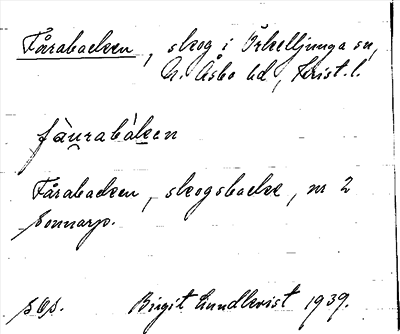 Fårabacken, skog i Örkelljunga sn,
N. Åsbo hd, Krist. l.
fàu̯rabàken
Fårabacken, skogsbacke, nr 2
Sonnarp.
Birgit Lundkvist 1939.